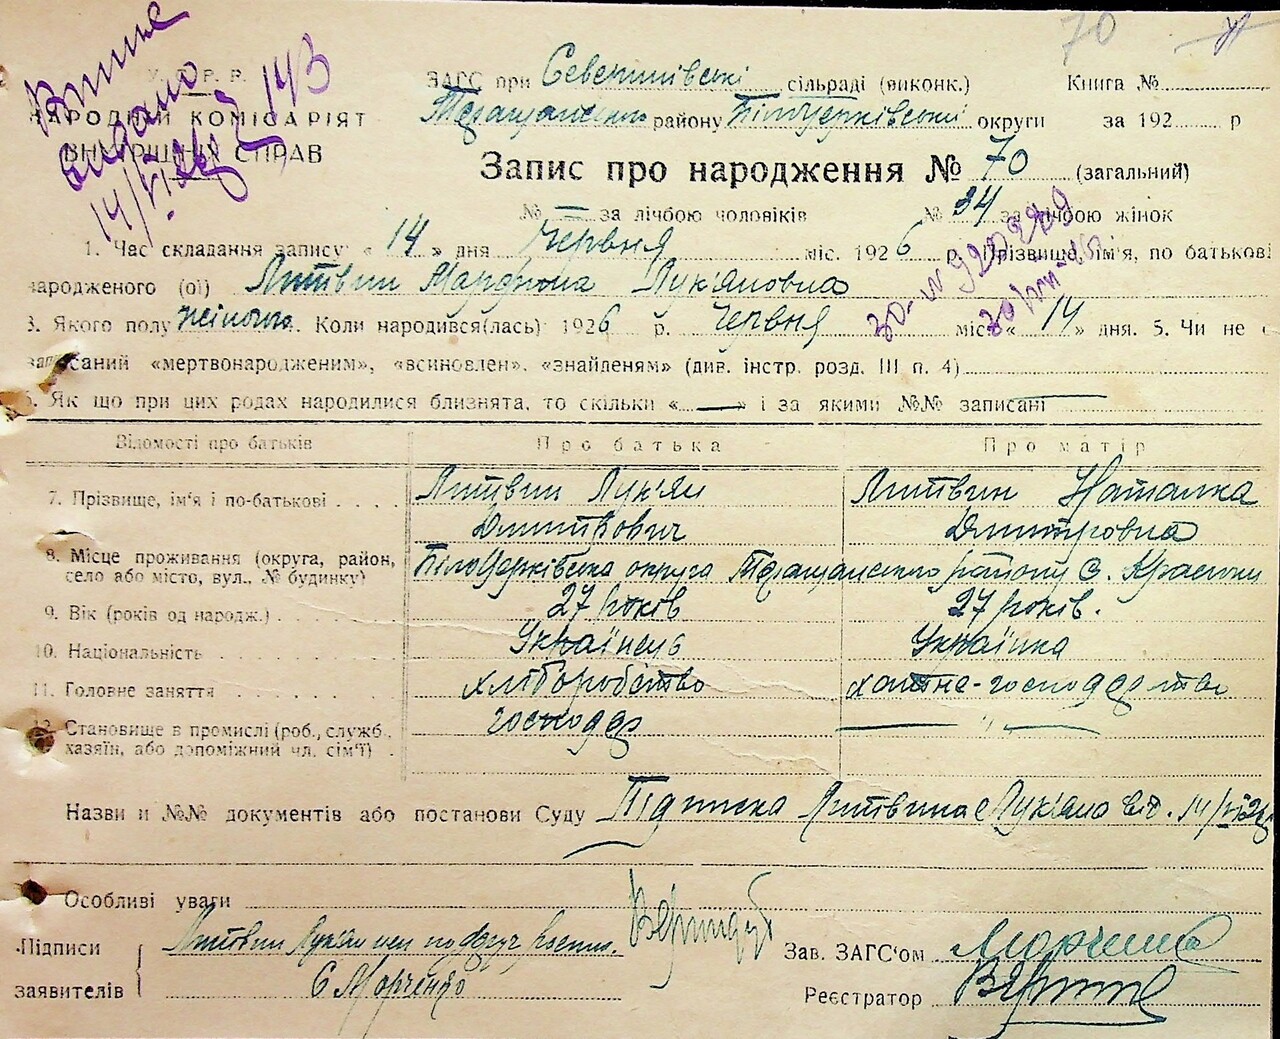 70
Виписа
видано
14/VI 26 р. 143
У. С. Р. Р.
НАРОДНІЙ КОМІСАРІЯТ
ВНУТРІШНІХ СПРАВ
ЗАГС при сільраді (виконк.) Книга №
Таращанського району Білоцерківської округи за 192 р
Запис про народження № 70 (загальний)
№ — за лічбою чоловіків № 34 за лічбою жінок
1. Час складання запису «14» дня Червня міс. 1926 р. Прізвище, ім'я, по батькові
народженого (ої) Литвин Марфина Лук'яновна
3. Якого полу жіночого. Коли народився(лась) 1926 р. Червня міс. «14» дня. 5. Чи не
записаний «мертвонародженим», «всиновлен», «знайденям» (див. інстр. розд. III п. 4)
6. Як що при цих родах народилися близнята, то скільки «—» і за якими №№ записані —
Відомості про батьків Про батька Про матір
7. Прізвище, ім'я і по-батькові Литвин Лук'ян Дмитрович Литвин Наталка Дмитровна
8. Місце проживання (округа, район, село або місто, вул., № будинку) Білоцерківська округа Таращанського району с.
9. Вік (років од народж.) 27 років 27 років.
10. Національність Українець Українка
11. Головне заняття хліборобство хатнє-господарство
12. Становище в промислі (роб., служб., хазяїн, або допоміжний чл. сім'ї) господар — " —
Назви и №№ документів або постанови Суду Підписка Литвина Лук'яна від. 14/VI 26
Особливі уваги
Підписи заявителів Литвин Лук'ян
Є Марченко
Зав. ЗАГС'ом
Реєстратор